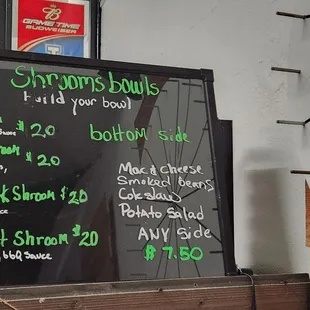 GAME TIME
BUDWEISER
Shrooms bowls
Build your bowl
$20
bottom side
$20
Mac & cheese
Smoked beans
Shroom $20
Cole slaw
Potato Salad
Shroom $20
ANY Side
BBQ Sauce
$7.50